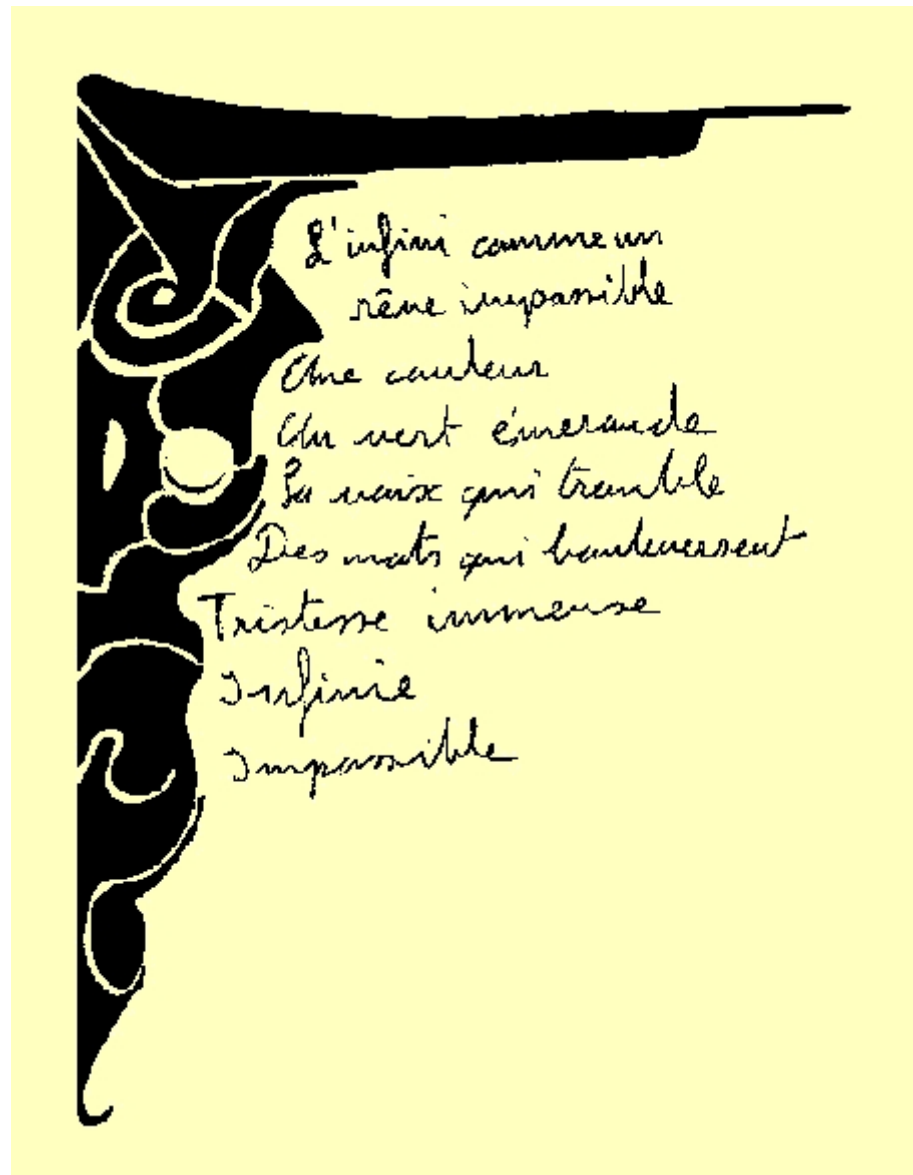 L'infini comme un
rêve impossible
Une couleur
Un vert émeraude
Sa voix qui trouble
Des mots qui bouleversent
Tristesse immense
Infinie
Impossible